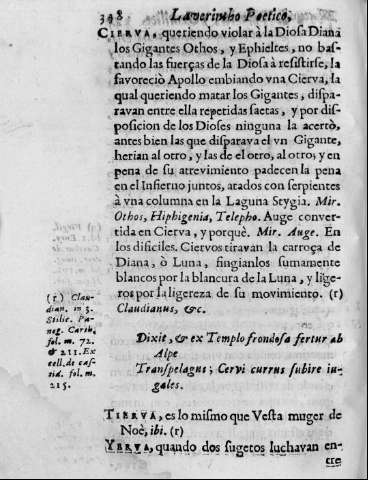 398 Laverintho Poetico,
CIERVA, queriendo violar à la Diosa Diana
los Gigantes Othos, y Ephieltes, no bas-
tando las fuerças de la Diosa à resistirse, la
favoreciò Apollo embiando vna Cierva, la
qual queriendo matar los Gigantes, dispa-
ravan entre ella repetidas saetas, y por dis-
posicion de los Dioses ninguna la acertò,
antes bien las que disparava el vn Gigante,
herian al otro, y las de el otro, al otro; y en
pena de su atrevimiento padecen la pena
en el Infierno juntos, atados con serpientes
à vna columna en la Laguna Stygia. Mir.
Othos, Hiphigenia, Telepho. Auge conver-
tida en Cierva, y porquè. Mir. Auge. En
los dificiles. Ciervos tiravan la carroça de
Diana, ò Luna, fingianlos sumamente
blancos por la blancura de la Luna, y lige-
ros por la ligereza de su movimiento. (r)
Claudianus, &c.
(r) Clau-
dian. in 3.
Stilic. Pa-
neg. Carth.
fol. m. 72.
& 211. Ex
cell. de cas-
tid. fol. m.
215.
Dixit, & ex Templo frondosa fertur ab
Alpe
Transpelagus; Cervi currus subire iu-
gales.
TIERVA, es lo mismo que Vesta muger de
Noè, ibi. (r)
YERVA, quando dos sugetos luchavan en-
tre